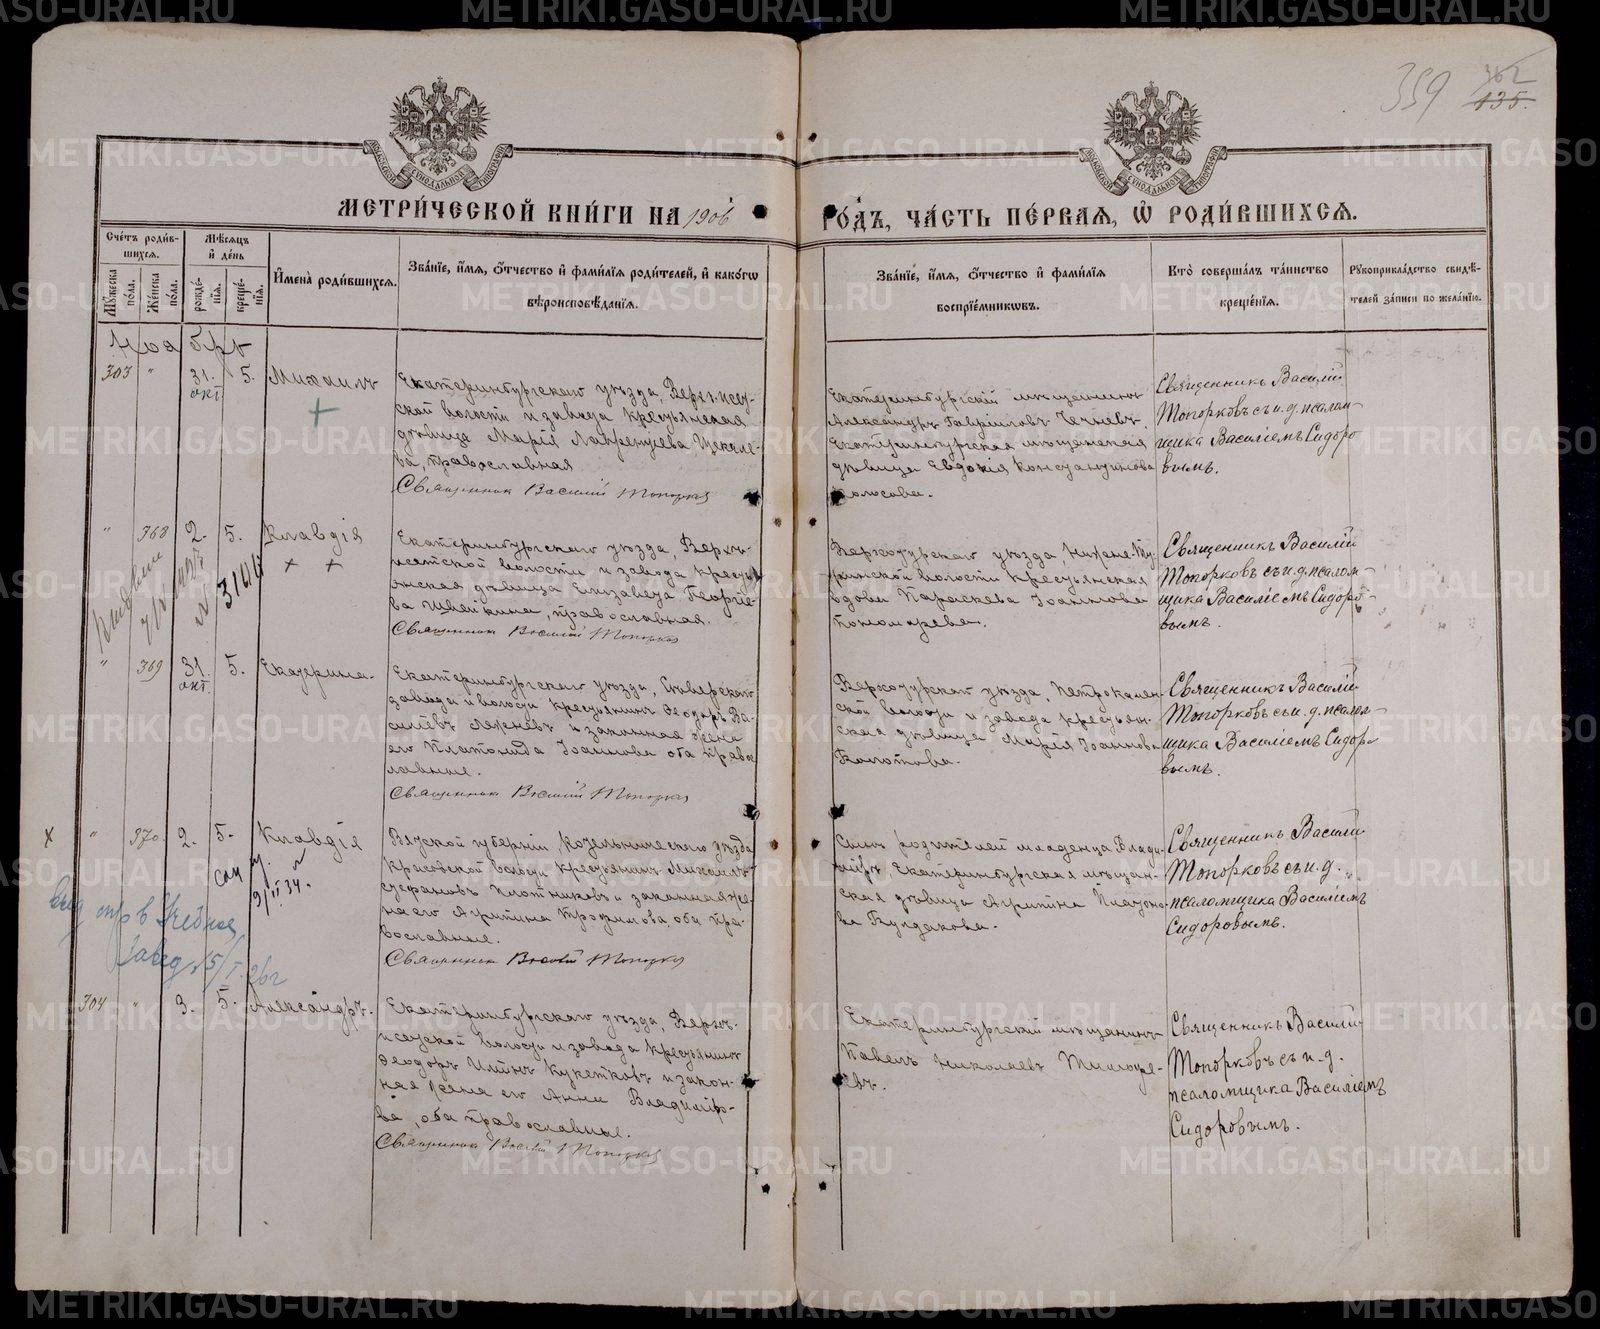 METRIKI.GASO-URAL.RU
359
362
135.
МЕТРИ́ЧЕСКОЙ КНИ́ГИ НА 1906 ГО́ДЪ, ЧА́СТЬ ПЕ́РВАЯ, Ѡ҆ РОДИ́ВШИХСЯ.
Сче́тъ роди́в-
шихся.
Мѣ́сяцъ
и҆ де́нь
Мꙋ́жеска по́ла.
Же́нска по́ла.
рожде́нїя.
креще́нїя.
И҆мена̀ роди́вшихся.
Зва́нїе, и҆́мя, ѻ҆́тчество и҆ фами́лїя роди́телей, и҆ како́гѡ
вѣроисповѣ́данїя.
Зва́нїе, и҆́мя, ѻ҆́тчество и҆ фами́лїя
воспрїе́мникѡвъ.
Кто̀ соверша́лъ та́инство
креще́нїя.
Рꙋкоприкла́дство свидѣ́-
телей за́писи по жела́нїю.
Ноябрь
303 " 31. окт. 5. Михаилъ
Екатеринбургскаго уѣзда, Верхъ-Исет-
ской волости и завода крестьянская
дѣвица Марія Лаврентьева
ва, православная
Священник Василий Топорков
Екатеринбургскій мѣщанинъ
Александръ Гавріиловъ
Екатеринбургская мѣщанская
дѣвица Евдокія Константинова
Колосова.
Священникъ Василій
Топорковъ съ и. д. псалом-
щика Василіемъ Сидоро-
вымъ.
" 368 2. 5. Клавдія
Екатеринбургскаго уѣзда, Верхъ-
исетской волости и завода крестья-
нская дѣвица Елизавета Георгіе-
ва Ивашкина, православная.
Священник Василий Топорков
Верхотурскаго уѣзда, Нижне-Ту-
ринской волости крестьянская
вдова Параскева Іоаннова
Пономарева.
Священникъ Василій
Топорковъ съ и. д. псалом-
щика Василіемъ Сидоро-
вымъ.
" 369 31. окт. 5. Екатерина.
Екатеринбургскаго уѣзда, Сысертскаго
завода и волости крестьянинъ Ѳеодоръ Ва-
сильевъ и законная жена
его Платонида Іоаннова оба право-
славные.
Священник Василий Топорков
Верхотурскаго уѣзда, Петрокамен-
ской волости и завода крестьян-
ская дѣвица Марія Іоаннова
Священникъ Василій
Топорковъ съ и. д. псалом-
щика Василіемъ Сидоро-
вымъ.
х " 370 2. 5. Клавдія
Вятской губерніи, Котельническаго уѣзда
Красовской волости крестьянинъ Михаилъ
Стефановъ Плотниковъ и законная же-
на его Агрипина Трофимова, оба пра-
вославные.
Священник Василий Топорков
Сынъ родителей младенца Влади-
міръ, Екатеринбургская мѣщан-
ская дѣвица Агрипина Платоно-
ва Булдакова.
Священникъ Василій
Топорковъ съ и. д.
псаломщика Василіемъ
Сидоровымъ.
304 " 3. 5. Александръ.
Екатеринбургскаго уѣзда, Верхъ-
исетской волости и завода крестьянинъ
Ѳеодоръ Ильинъ и закон-
ная жена его Анна Владиміро-
ва, оба православные.
Священник Василий Топорков
Екатеринбургскій мѣщанинъ
Павелъ Николаевъ Тимофе-
евъ.
Священникъ Василій
Топорковъ съ и. д.
псаломщика Василіемъ
Сидоровымъ.